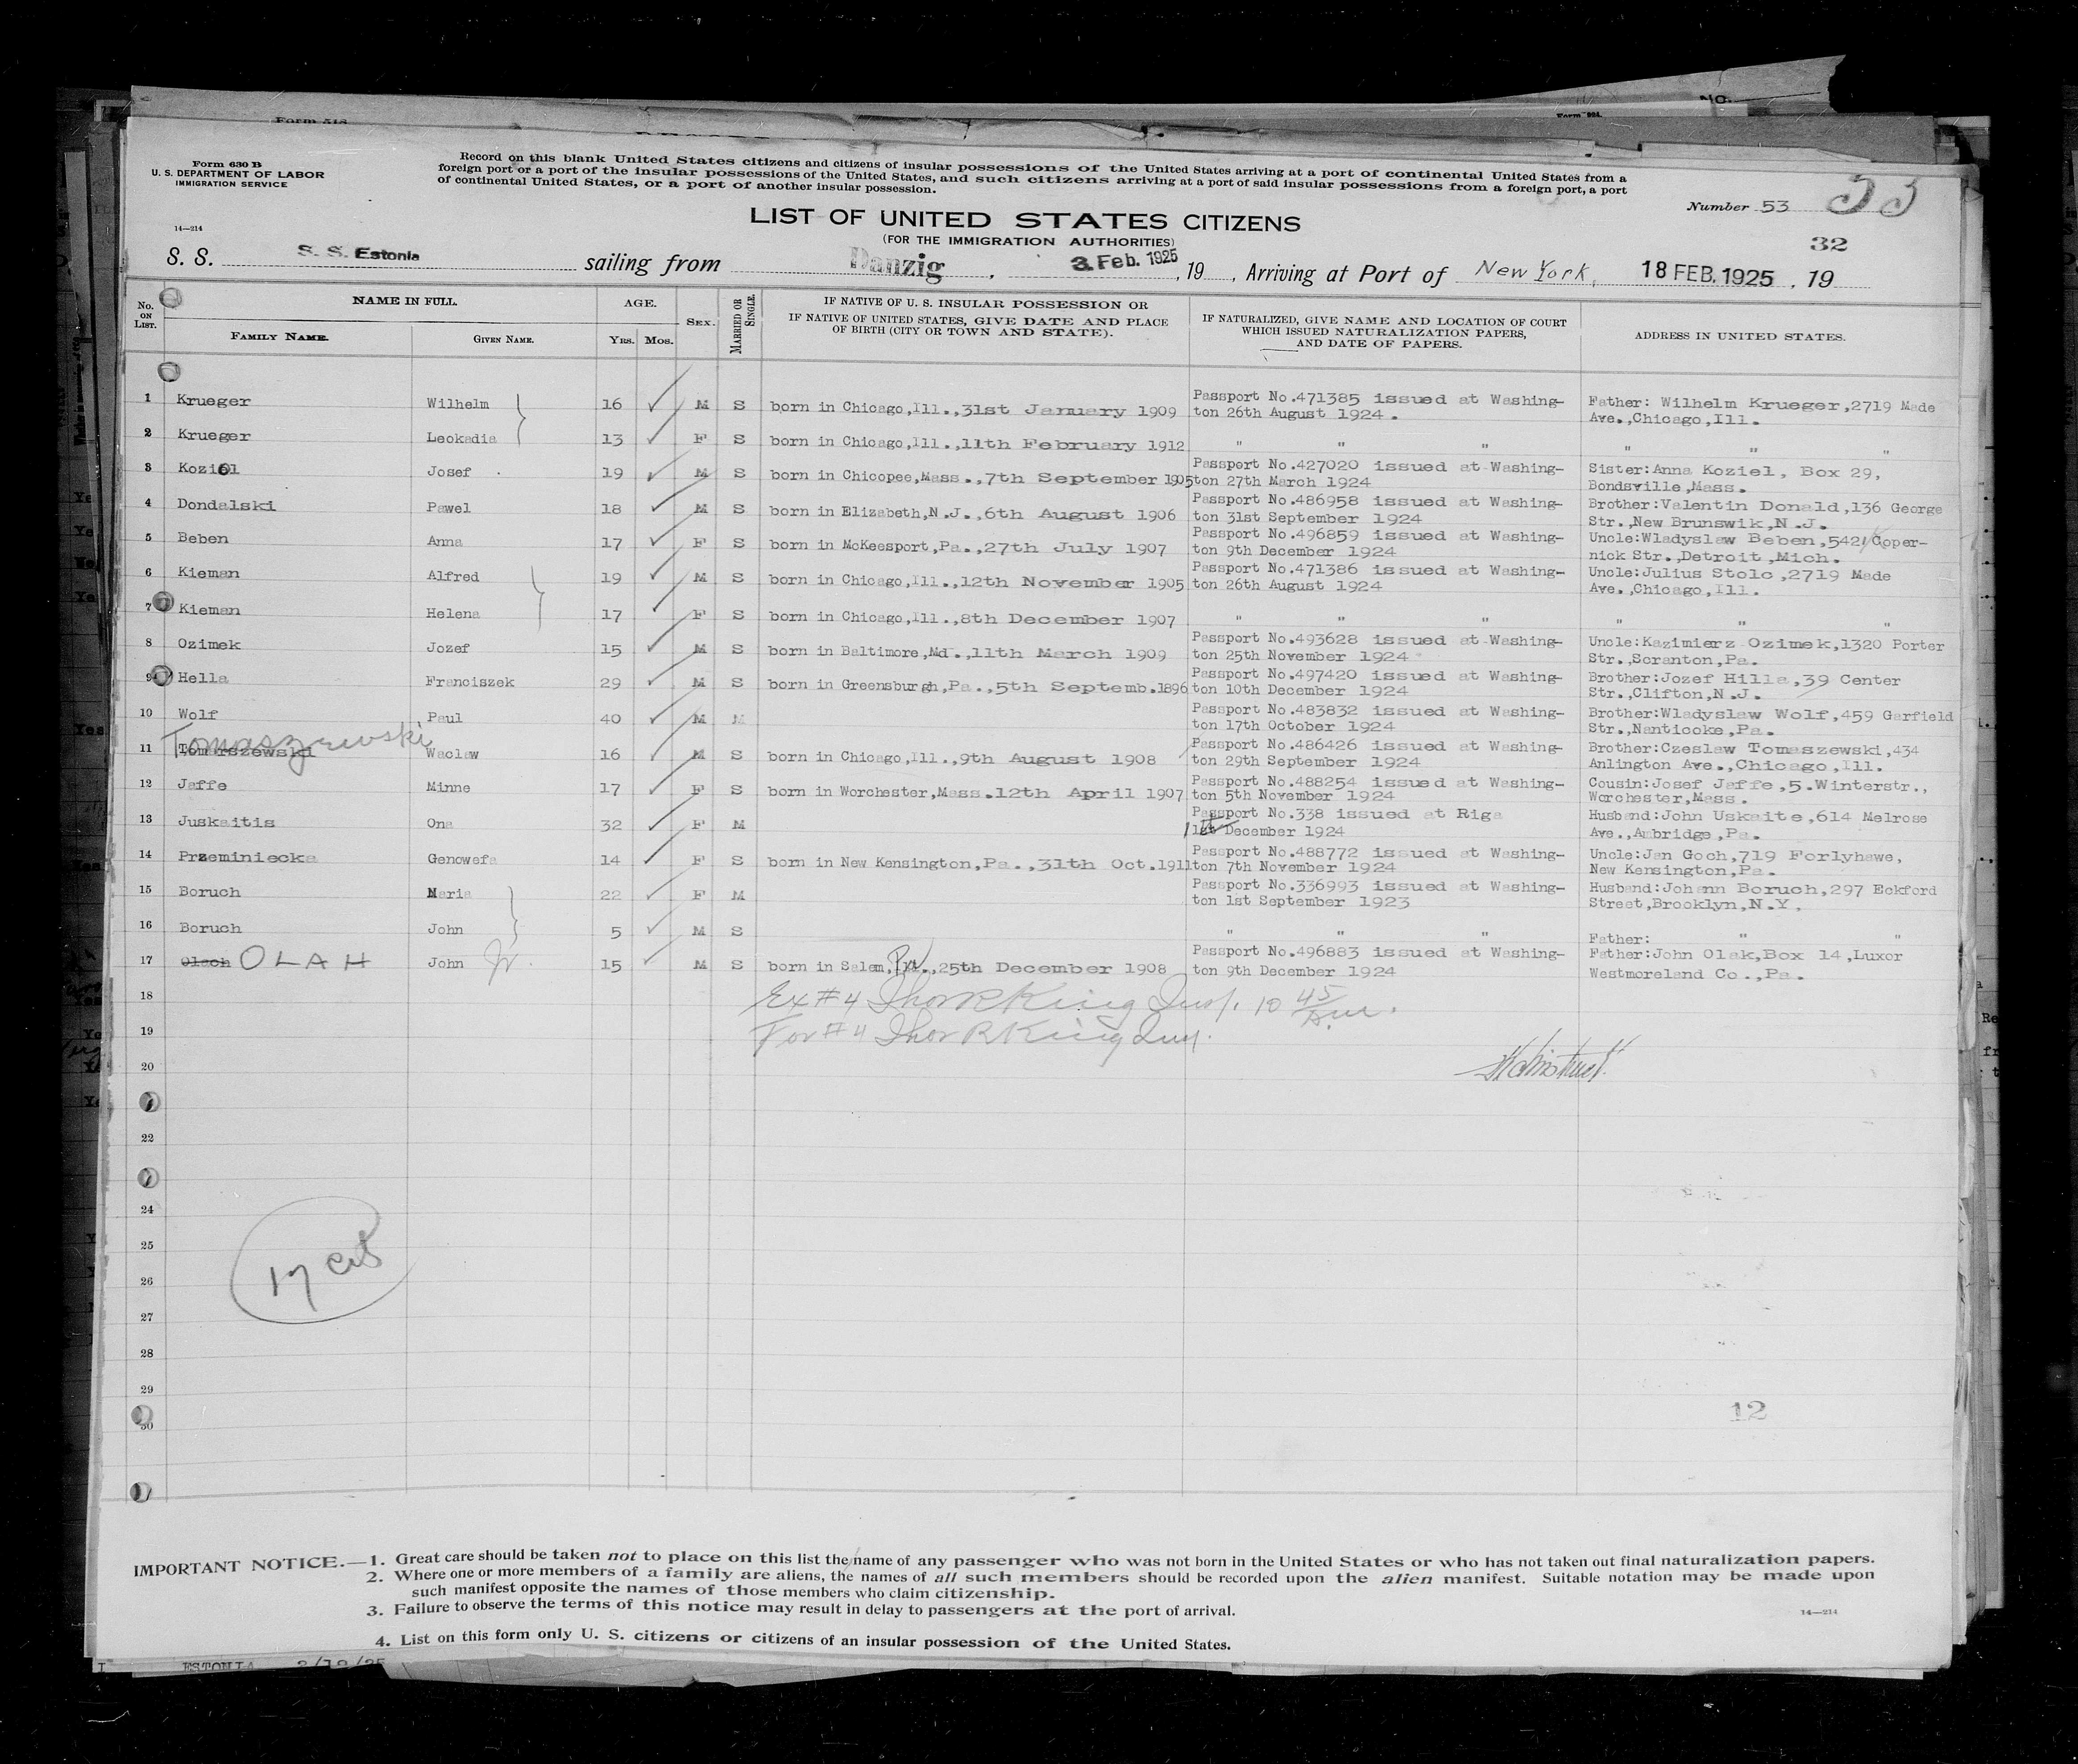 NO.
Form 518
Form 630 B
U. S. DEPARTMENT OF LABOR
IMMIGRATION SERVICE
14—214
Record on this blank United States citizens and citizens of insular possessions of the United States arriving at a port of continental United States from a
foreign port or a port of the insular possessions of the United States, and such citizens arriving at a port of said insular possessions from a foreign port, a port
of continental United States, or a port of another insular possession.
Number 53 53
LIST OF UNITED STATES CITIZENS
(FOR THE IMMIGRATION AUTHORITIES)
32
S. S. S. S. Estonia sailing from Danzig, 3 Feb. 1925, 19 , Arriving at Port of New York, 18 FEB. 1925 , 19
No. on List. NAME IN FULL. AGE. Sex. Married or Single.
Family Name. Given Name. Yrs. Mos.
IF NATIVE OF U. S. INSULAR POSSESSION OR
IF NATIVE OF UNITED STATES, GIVE DATE AND PLACE
OF BIRTH (CITY OR TOWN AND STATE).
IF NATURALIZED, GIVE NAME AND LOCATION OF COURT
WHICH ISSUED NATURALIZATION PAPERS,
AND DATE OF PAPERS.
ADDRESS IN UNITED STATES.
1 Krueger Wilhelm 16 M S born in Chicago,Ill.,31st January 1909 Passport No.471385 issued at Washing- Father: Wilhelm Krueger,2719 Made
ton 26th August 1924. Ave.,Chicago,Ill.
2 Krueger Leokadia 13 F S born in Chicago,Ill.,11th February 1912 " " " " " "
3 Koziol Josef 19 M S born in Chicopee,Mass.,7th September 1905 Passport No.427020 issued at Washing- Sister:Anna Koziel, Box 29,
ton 27th March 1924 Bondsville,Mass.
4 Dondalski Pawel 18 M S born in Elizabeth,N.J.,6th August 1906 Passport No.486958 issued at Washing- Brother:Valentin Donald,136 George
ton 31st September 1924 Str.,New Brunswik,N.J.
5 Beben Anna 17 F S born in McKeesport,Pa.,27th July 1907 Passport No.496859 issued at Washing- Uncle:Wladyslaw Beben,5421 Coper-
ton 9th December 1924 nick Str.,Detroit,Mich.
6 Kieman Alfred 19 M S born in Chicago,Ill.,12th November 1905 Passport No.471386 issued at Washing- Uncle:Julius Stolc,2719 Made
ton 26th August 1924 Ave.,Chicago,Ill.
7 Kieman Helena 17 F S born in Chicago,Ill.,8th December 1907 " " " " " "
8 Ozimek Jozef 15 M S born in Baltimore,Md.,11th March 1909 Passport No.493628 issued at Washing- Uncle:Kazimierz Ozimek,1320 Porter
ton 25th November 1924 Str.,Scranton,Pa.
9 Hella Franciszek 29 M S born in Greensburgh,Pa.,5th Septemb.1896 Passport No.497420 issued at Washing- Brother:Jozef Hilla,39 Center
ton 10th December 1924 Str.,Clifton,N.J.
10 Wolf Paul 40 M M Passport No.483832 issued at Washing- Brother:Wladyslaw Wolf,459 Garfield
ton 17th October 1924 Str.,Nanticoke,Pa.
Tomaszewski
11 Tomarszewski Waclaw 16 M S born in Chicago,Ill.,9th August 1908 Passport No.486426 issued at Washing- Brother:Czeslaw Tomaszewski,434
ton 29th September 1924 Anlington Ave.,Chicago,Ill.
12 Jaffe Minne 17 F S born in Worchester,Mass.12th April 1907 Passport No.488254 issued at Washing- Cousin:Josef Jaffe,5.Winterstr.,
ton 5th November 1924 Worchester,Mass.
13 Juskaitis Ona 32 F M Passport No.338 issued at Riga Husband:John Uskaite,614 Melrose
December 1924 Ave.,Ambridge,Pa.
14 Przeminiecka Genowefa 14 F S born in New Kensington,Pa.,31th Oct.1911 Passport No.488772 issued at Washing- Uncle:Jan Goch,719 Forlyhawe,
ton 7th November 1924 New Kensington,Pa.
15 Boruch Maria 22 F M Passport No.336993 issued at Washing- Husband:Johann Boruch,297 Eckford
ton 1st September 1923 Street,Brooklyn,N.Y,
16 Boruch John 5 M S " " " Father: " "
17 Olach OLAH John Jr. 15 M S born in Salem,Pa.,25th December 1908 Passport No.496883 issued at Washing- Father:John Olak,Box 14,Luxor
ton 9th December 1924 Westmoreland Co.,Pa.
18 Ex #4 Thor R King Insp. 10 45 A.m.
19 For #4 Thor R King Insp.
20
22
24
25
26
27
28
29
30
17 cits
12
IMPORTANT NOTICE.—1. Great care should be taken not to place on this list the name of any passenger who was not born in the United States or who has not taken out final naturalization papers.
2. Where one or more members of a family are aliens, the names of all such members should be recorded upon the alien manifest. Suitable notation may be made upon
such manifest opposite the names of those members who claim citizenship.
3. Failure to observe the terms of this notice may result in delay to passengers at the port of arrival.
14—214
4. List on this form only U. S. citizens or citizens of an insular possession of the United States.
ESTONIA 2/18/25